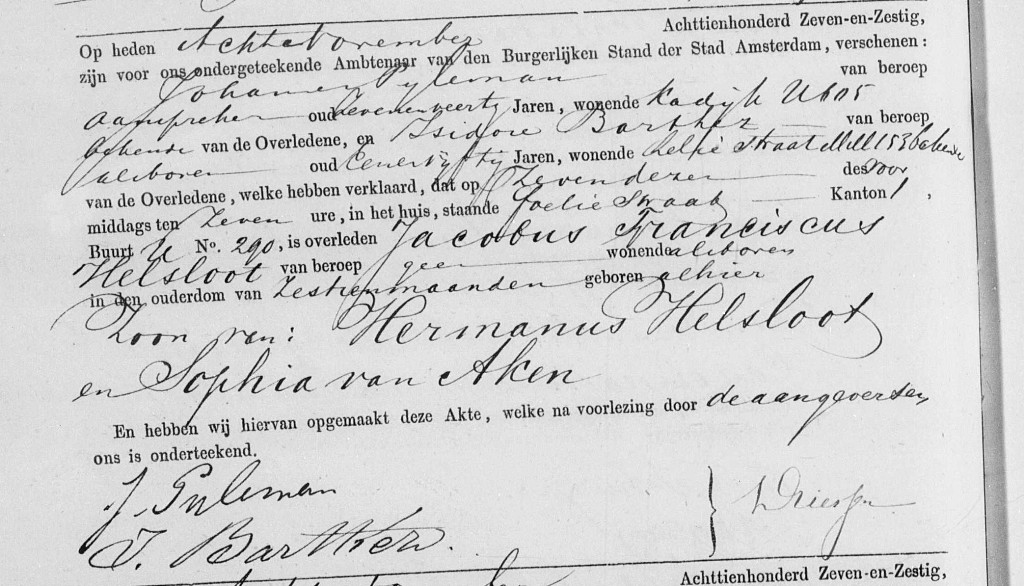 Achttienhonderd Zeven-en-Zestig,
Op heden Acht November
zijn voor ons ondergeteekende Ambtenaar van den Burgerlijken Stand der Stad Amsterdam, verschenen:
Johannes Pyleman van beroep
Aanspreker oud Zevenenveertig Jaren, wonende Kadijk U 605
bekende van de Overledene, en Isidore Barthez van beroep
als boven oud Eenenvijftig Jaren, wonende Straat 153 bekende
van de Overledene, welke hebben verklaard, dat op Zeven dezer des Voor
middags ten Zeven ure, in het huis, staande Foelie Straat Kanton 1,
Buurt U No. 290, is overleden Jacobus Franciscus
Helsloot van beroep geen wonende als boven
in den ouderdom van Zestien maanden geboren alhier
Zoon van: Hermanus Helsloot
en Sophia van Aken
En hebben wij hiervan opgemaakt deze Akte, welke na voorlezing door de aangevers en
ons is onderteekend.
J. Pyleman
Driessen
I. Barthez.
Achttienhonderd Zeven-en-Zestig,